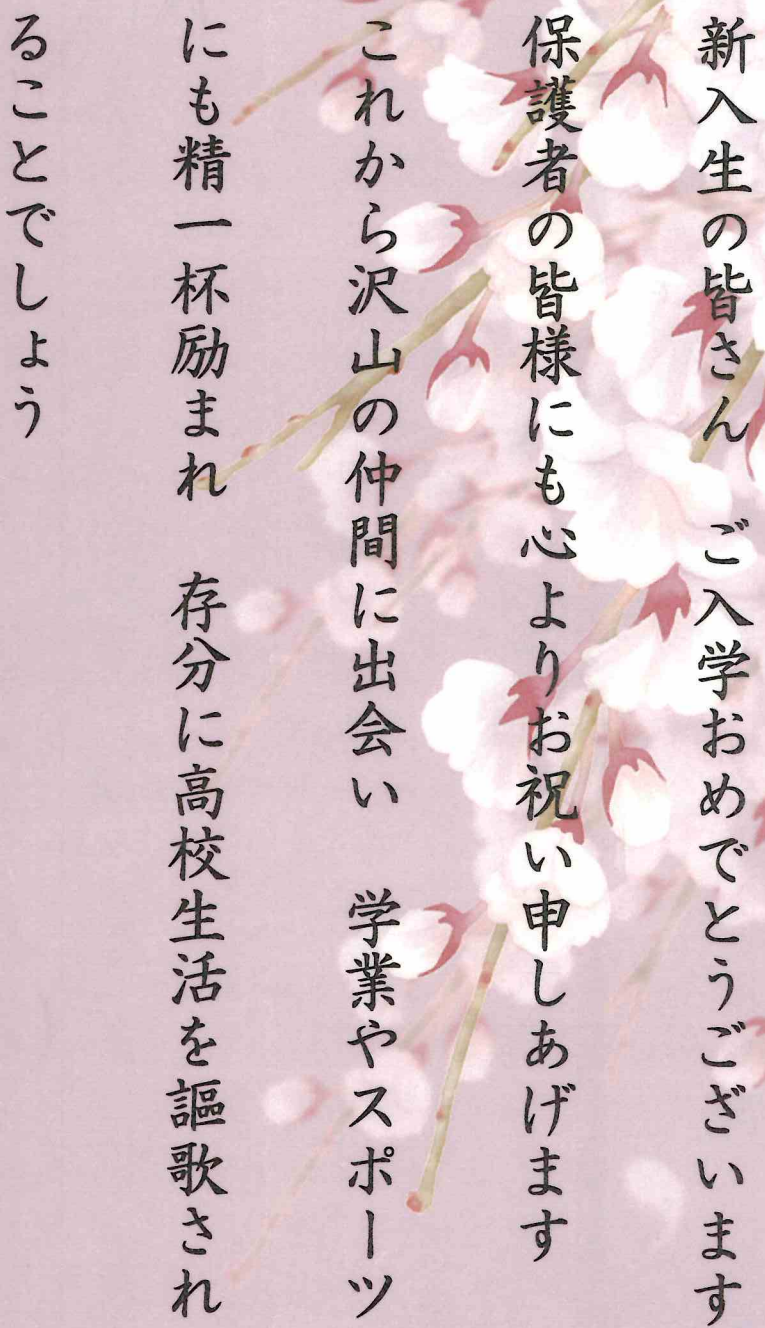 新入生の皆さん　ご入学おめでとうございます
保護者の皆様にも心よりお祝い申しあげます
これから沢山の仲間に出会い　学業やスポーツ
にも精一杯励まれ　存分に高校生活を謳歌され
ることでしょう